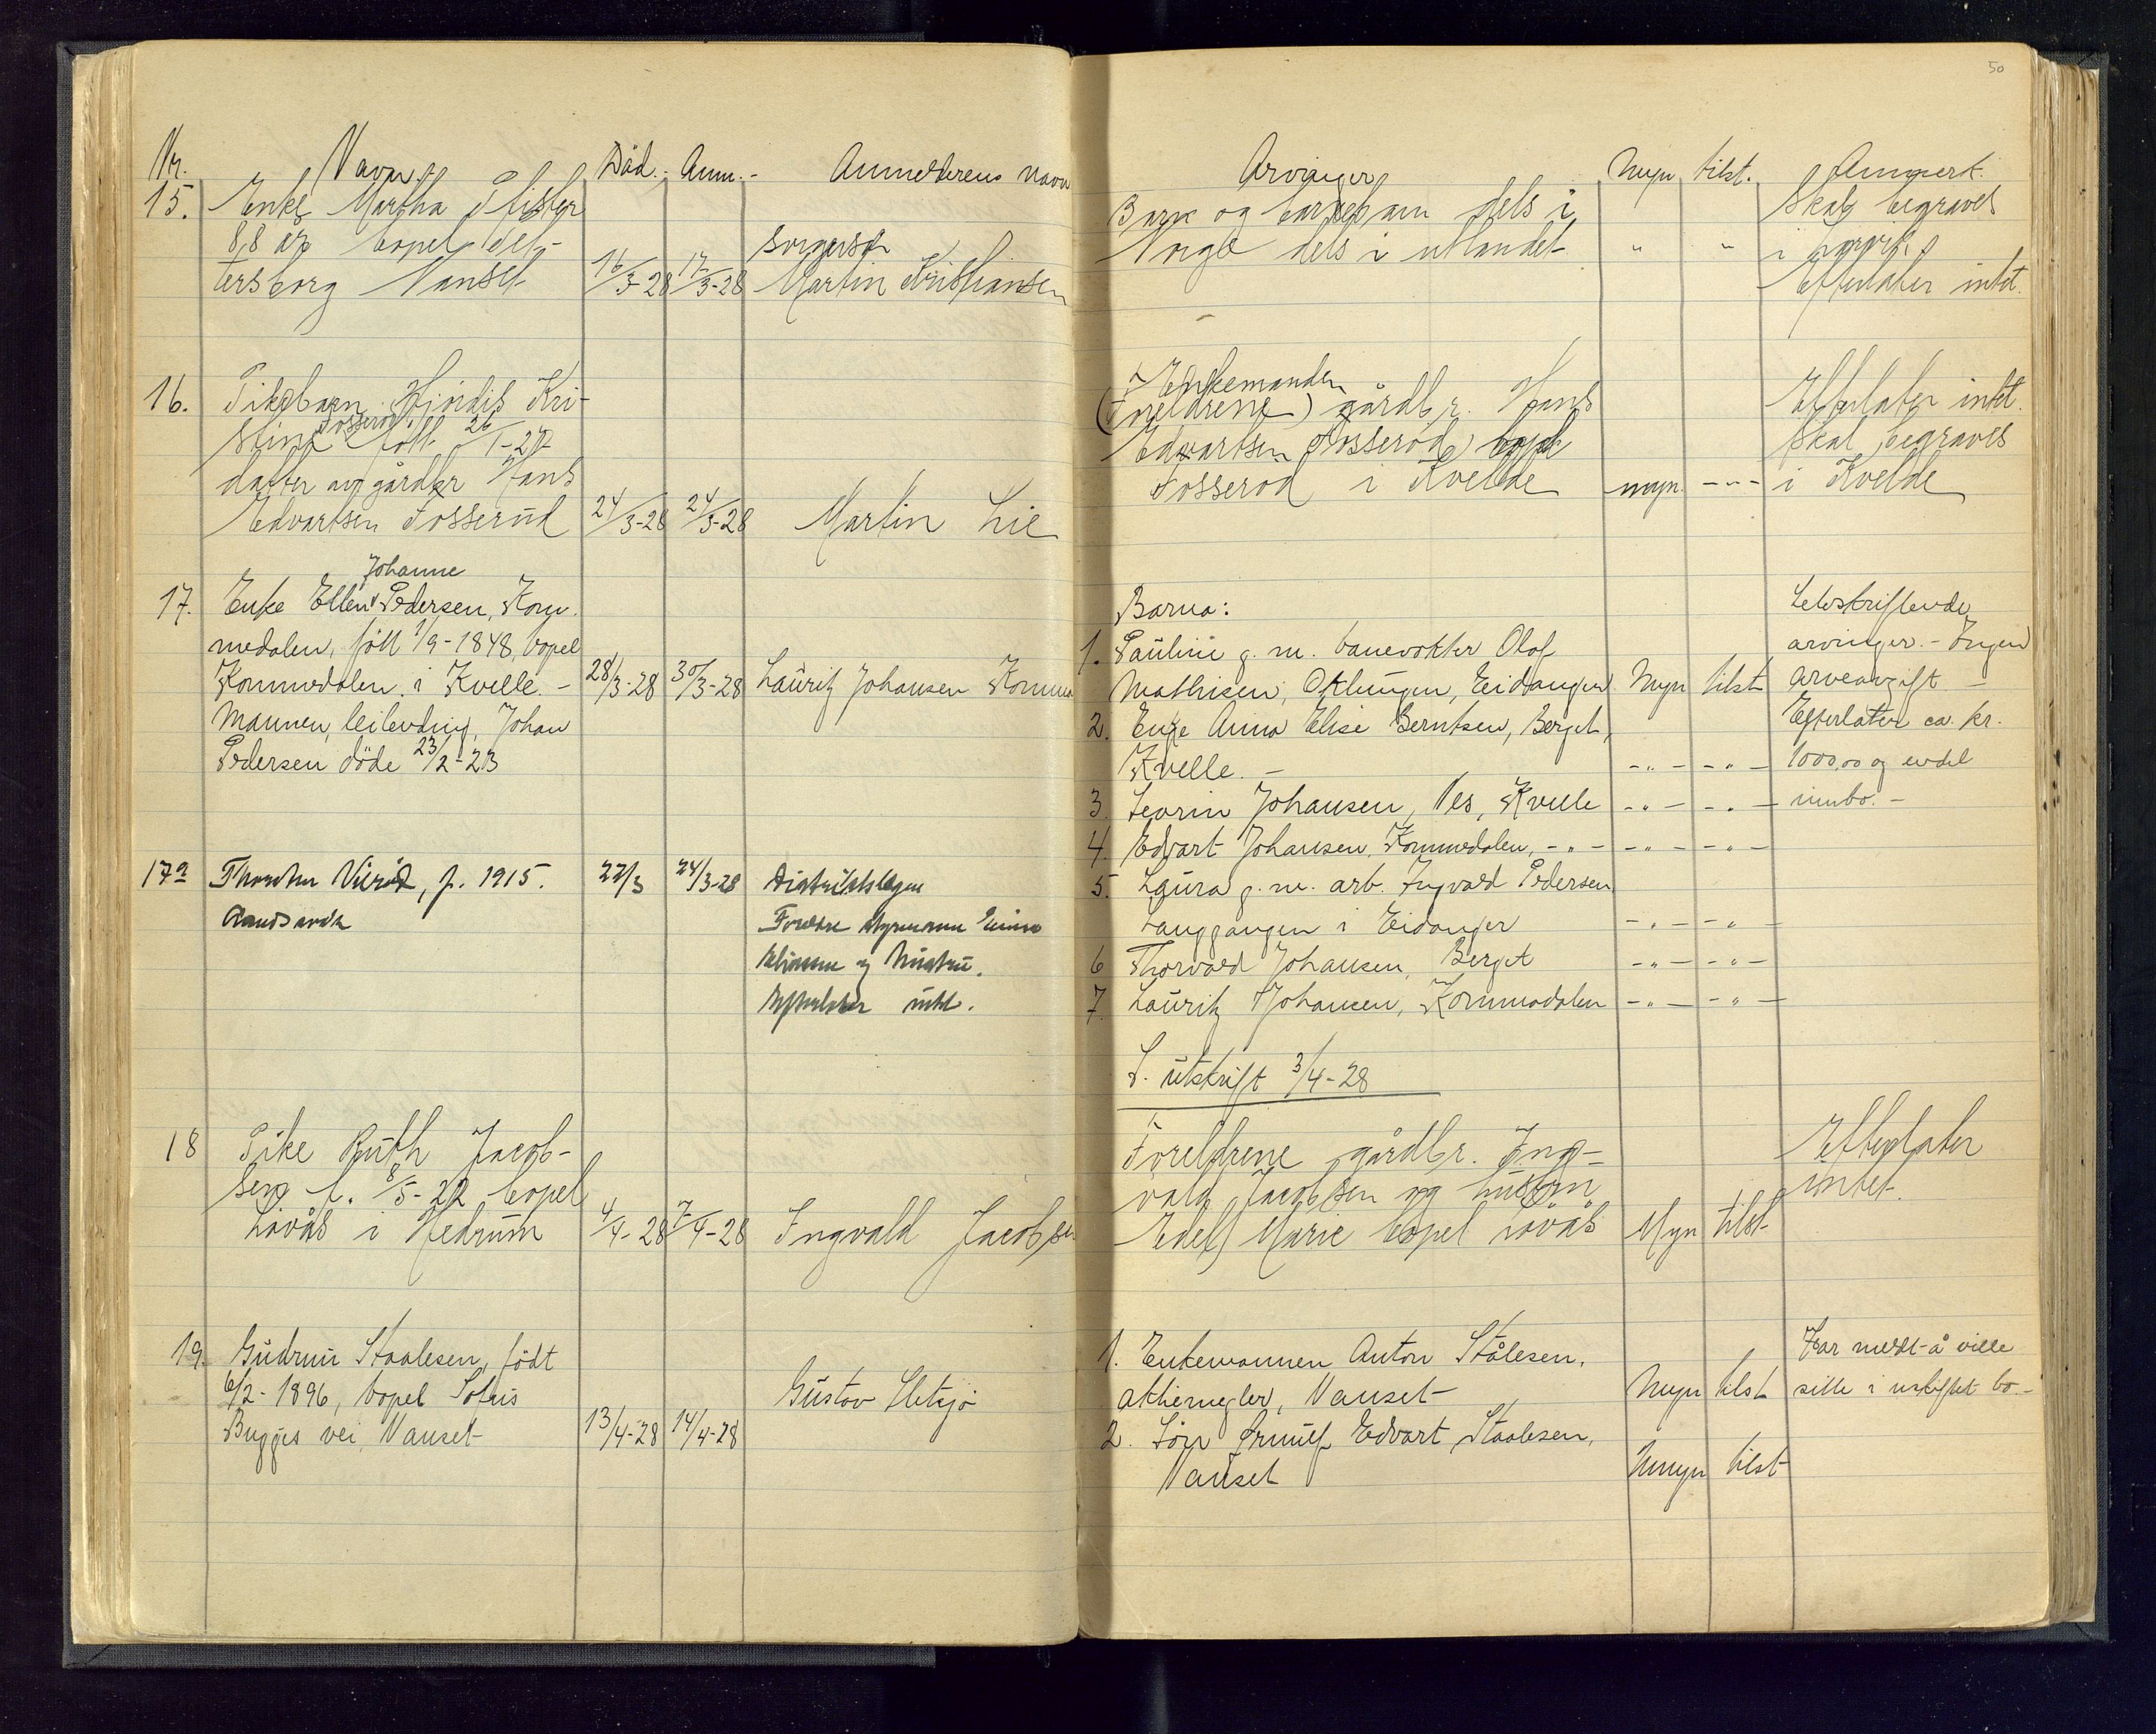 Nr. Navn. Död. Anm. Anmelderens navn
15. Enke Martha Pfister
88 år bopel Pet-
tersborg Nanset 16/3-28 17/3-28 Martin Kristiansen
16. Pikebarn Hjördis Kri-
stine Fosserød föt 26/1-27
datter av gårdbr Hans
Edvartsen Fosserød 24/3-28 24/3-28 Martin Lie
Johanne
17. Enke Ellen Pedersen, Kom-
medalen, föt 1/9-1848, bopel
Kommedalen i Kvelle. - 28/3-28 30/3-28 Lauritz Johansen Komme
Mannen, leilending, Johan
Pedersen döde 23/2-23
17a , f. 1915. 22/3 24/3-28 Distriktslægen
Foreldre styrmann
og hustru.
Efterlater intet.
18 Pike Ruth Jacob-
sen f. 8/5-22 bopel
Løvås i Hedrum 4/4-28 7/4-28 Ingvald Jacobsen
19. Gudrun Staalesen, födt
6/2-1896, bopel Sofus
Bugges vei, Nanset 13/4-28 14/4-28 Gustav
50
Arvinger Myn tilst. Anmerk.
Barn og barnebarn dels i Skal begraves
Norge dels i utlandet " " i Larvik
Efterlater intet.
Enkemanden
(Foreldrene) gårdbr. Hans Efterlater intet.
Edvartsen Fosserød bopel Skal begraves
Fosserød i Kvelde myn. -"- i Kvelde
Barna: Selvskiftende
1. Pauline g. m. banevokter Olaf arvinger. - Ingen
Mathisen, Oklungen, Eidanger Myn tilst arveavgift -
2. Enke Anna Elise Berntsen, Berget, Efterlater ca. kr.
Kvelle. - -"- -"- 1000,00 og endel
3. Johansen, Nes, Kvelle -"- -"- innbo. -
4. Edvart Johansen, Kommedalen, -"- -"- -"-
5. Laura g. m. arb. Ingvald Pedersen
Langgangen i Eidanger -"- -"-
6 Thorvald Johansen, Berget -"- -"-
7. Lauritz Johansen, Kommedalen -"- -"-
S. utskrift 3/4-28
Foreldrene gårdbr. Ing- Efterlater
vald Jacobsen og hustru intet.
Edel Marie bopel Løvås Myn tilst
1. Enkemannen Anton Stålesen, Har meldt å ville
aktiemegler, Nanset Myn tilst sitte i uskiftet bo. -
2. Sön Edvart Staalesen,
Nanset Umyn tilst